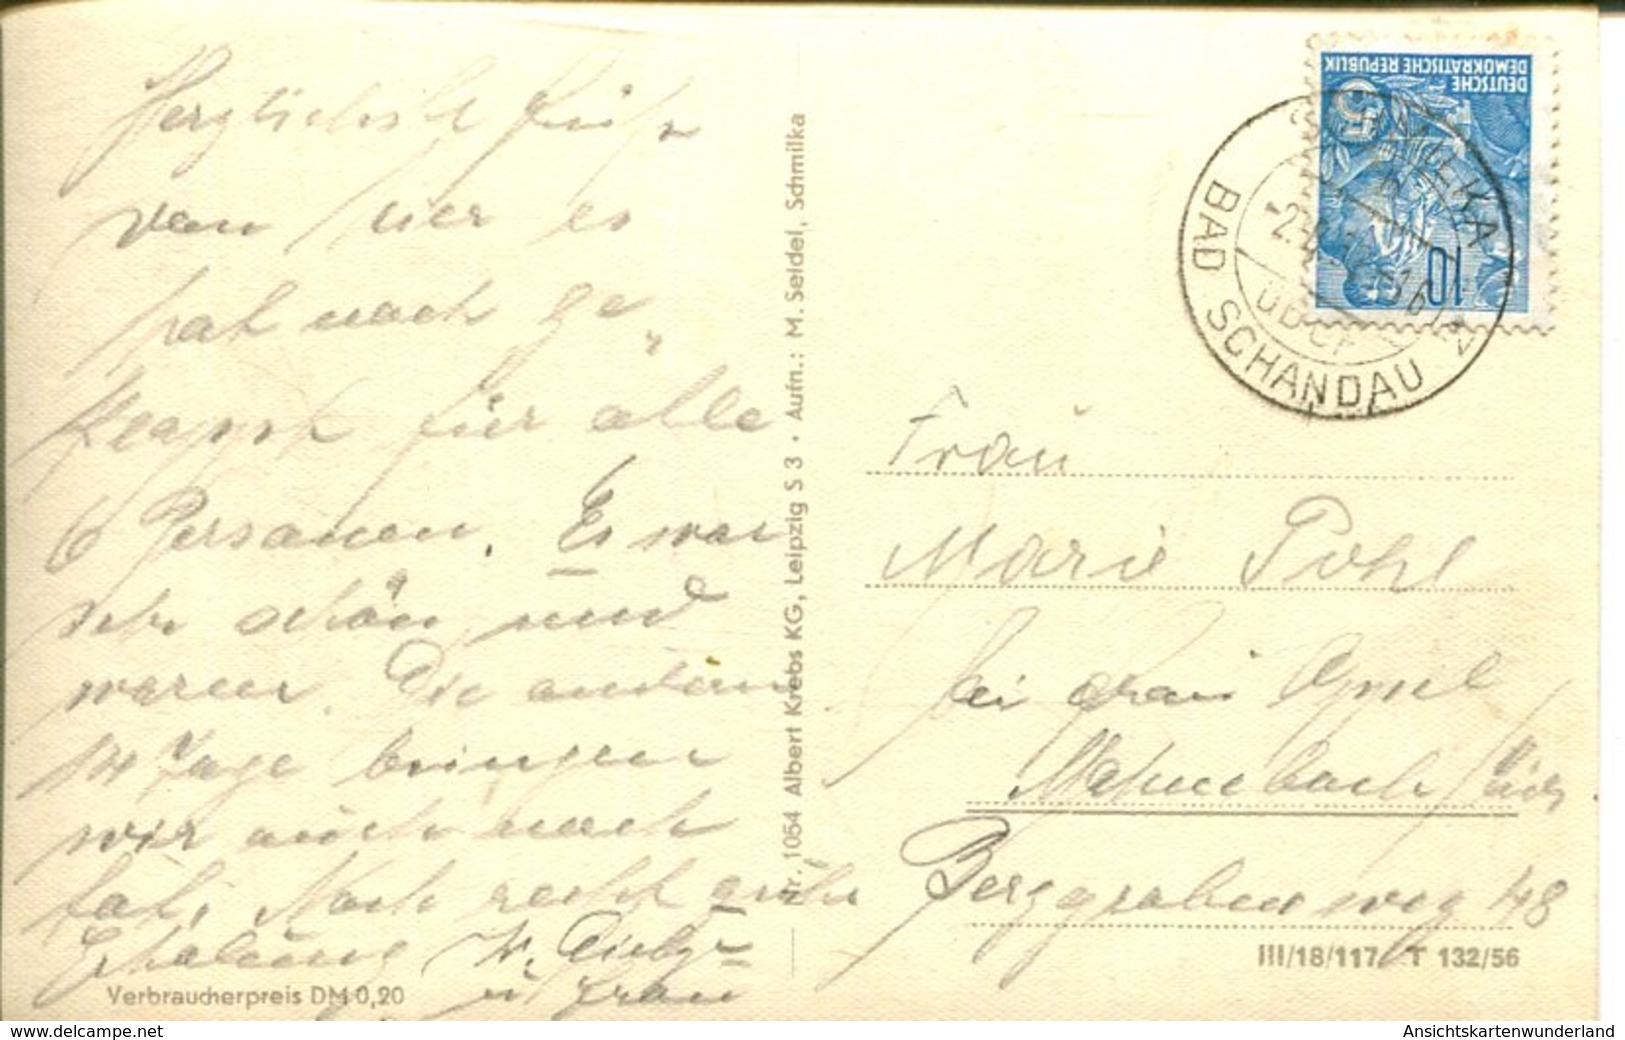 Herzlichste Grüße
von hier es
hat noch ge„
klappt für alle
6 Personen. Es war
sehr schön und
warm. Die andern
14 Tage bringen
wir auch noch
tot. Noch recht gute
Erholung
u. Frau
Verbraucherpreis DM 0,20
Nr. 1054 Albert Krebs KG, Leipzig S 3 · Aufn.: M. Seidel, Schmilka
DEUTSCHE
DEMOKRATISCHE REPUBLIK
5
10
über
BAD SCHANDAU
Frau
Marie Pohl
bei Frau
Berggrabenweg 48
III/18/117 T 132/56
www.delcampe.net
Ansichtskartenwunderland